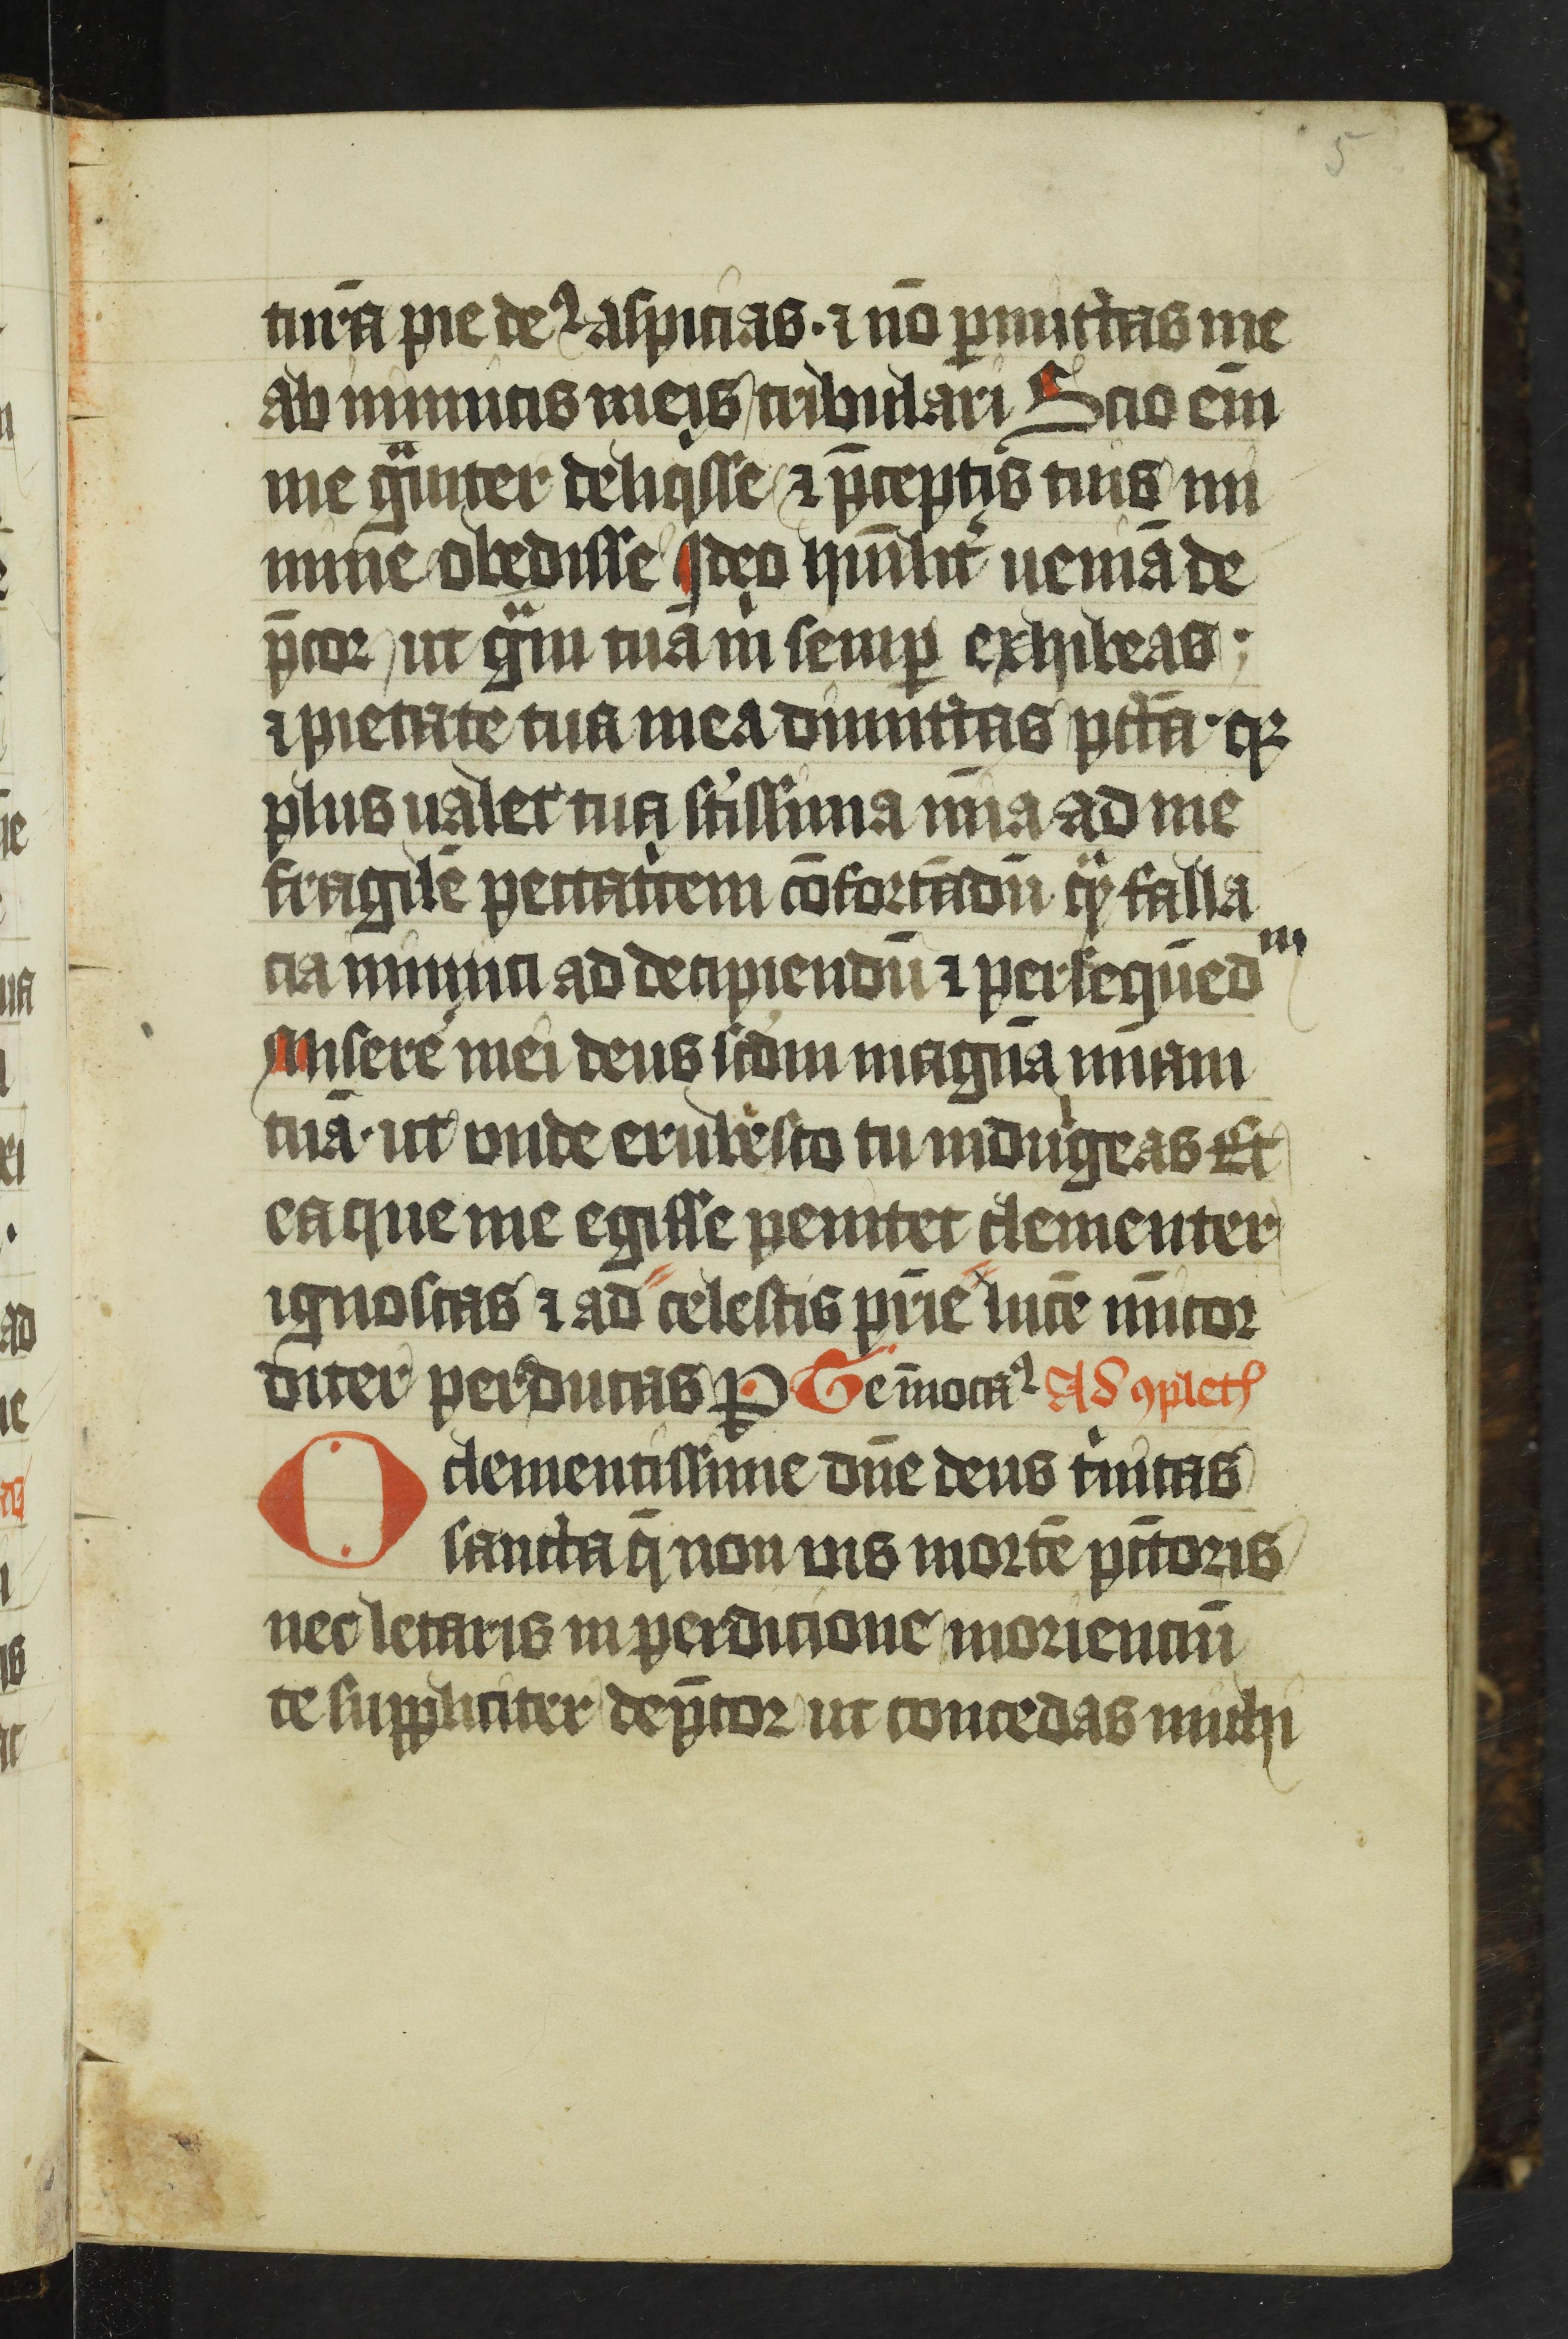 5
turā pie deꝰ aspicias. ⁊ nō ꝑmittas me
ab inimicis meis tribulari Scio eīm
me gͣuiter deliqͥsse ⁊ p̄ceptis tuis mi
nime obedisse Ideo humilit̄ ueniā de
p̄cor ut gͣm tuā m̍ semꝑ exhibeas ;
⁊ pietate tua mea dimittas pctā· qꝛ
plus ualet tua sc̄issima mīa ad me
fragilē peccatͥcem cōfortādū qͣ falla
cia inimici ad decipiendū ⁊ persequēd
m
Miserē mei deus scd̄m magnā mīam
tuā· ut unde erubesco tu indulgeas Et
ea que me egisse penitet clementer
ignoscas ⁊ ad celestis pr̄ie lucē mīcor
diter perducas P Te īuocaꝰ AD ꝯplet
O clementissime dn̄e deus tͥnitas
sancta q̄ non uis mortē pctōris
nec letaris in perdicione morienciū
te suppliciter dep̄cor ut concedas michi